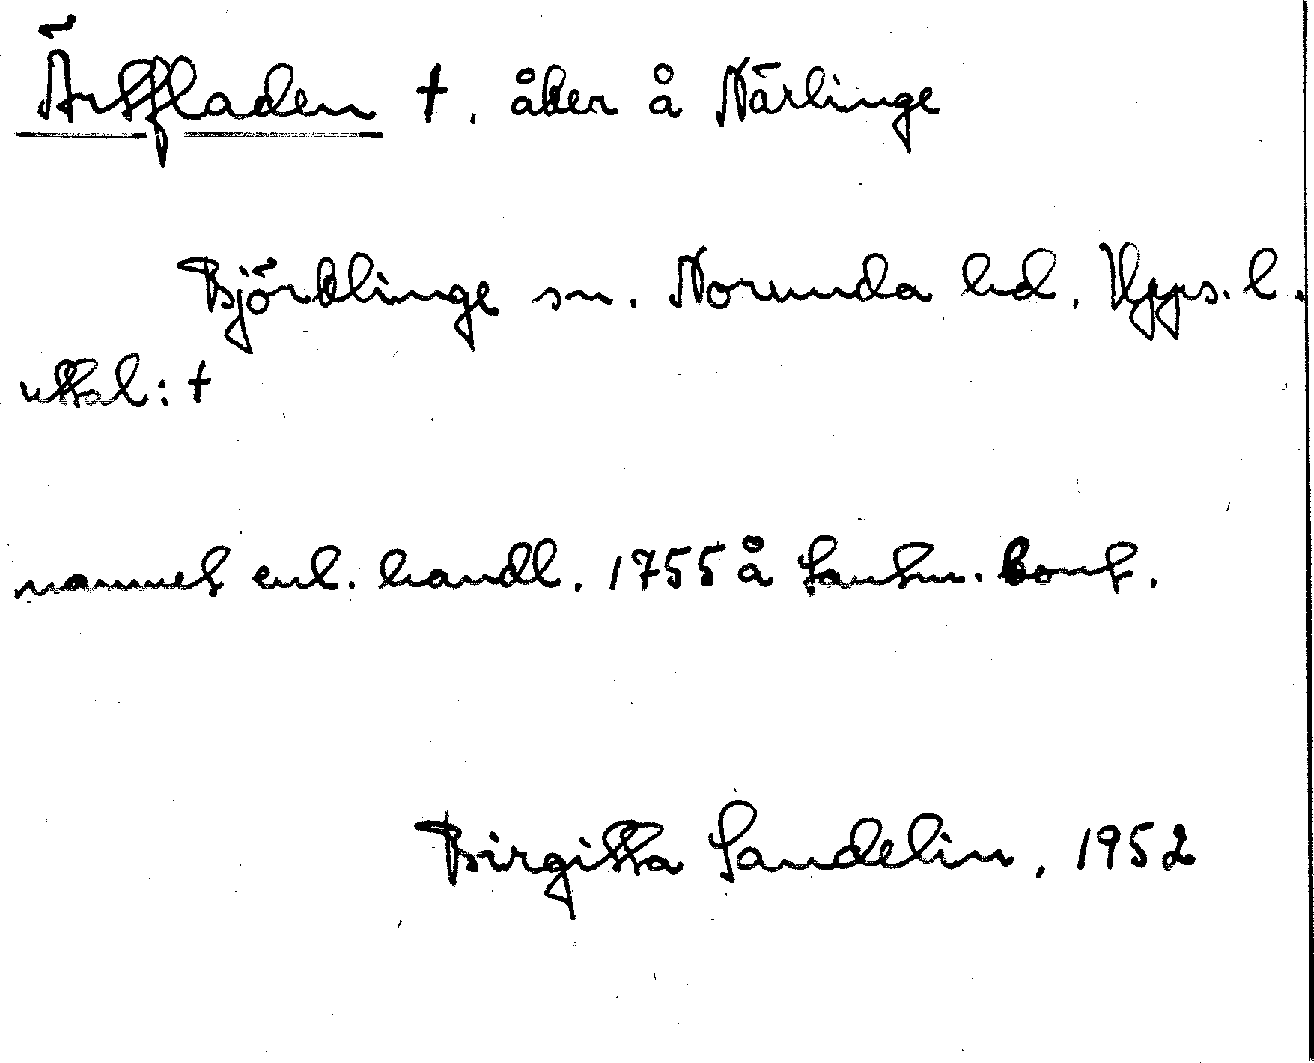 Ärtfladen †. åker å Närlinge
Björklinge sn. Norunda hd. Upps. l.
uttal: †
namnet enl. handl. 1755 å Lantm. Cont.
Birgitta Sandelin, 1952